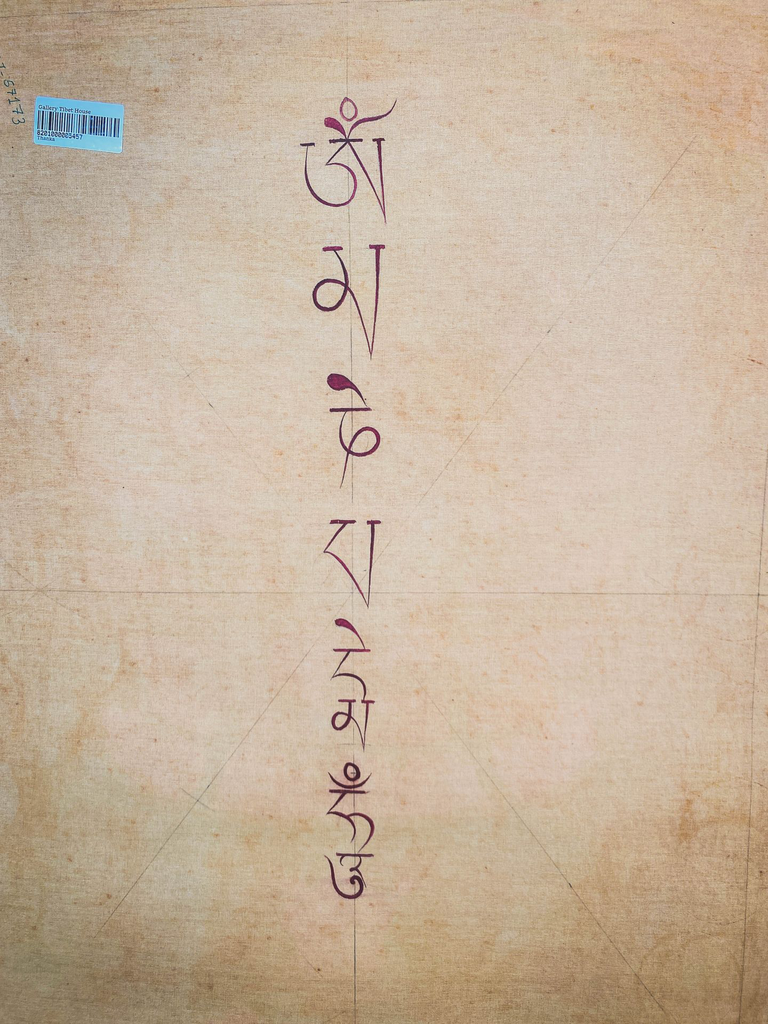 Gallery:Tibet House
8201000005457
Thanka
ཨོཾ
མ
ཎི
པ
དྨེ
ཧཱུྃ